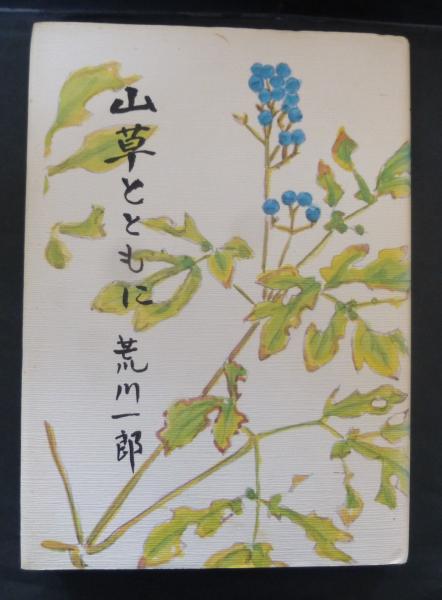 山草とともに
荒川一郎